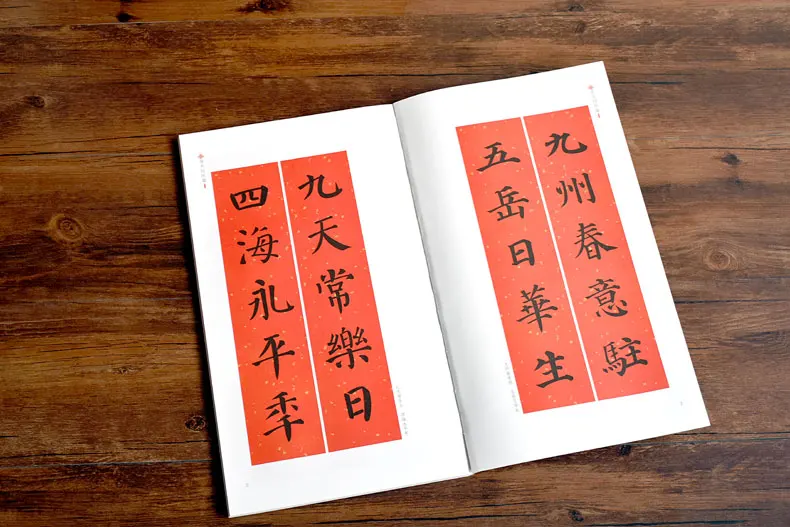 九州春意駐
五岳日華生
九天常樂日
四海永平年